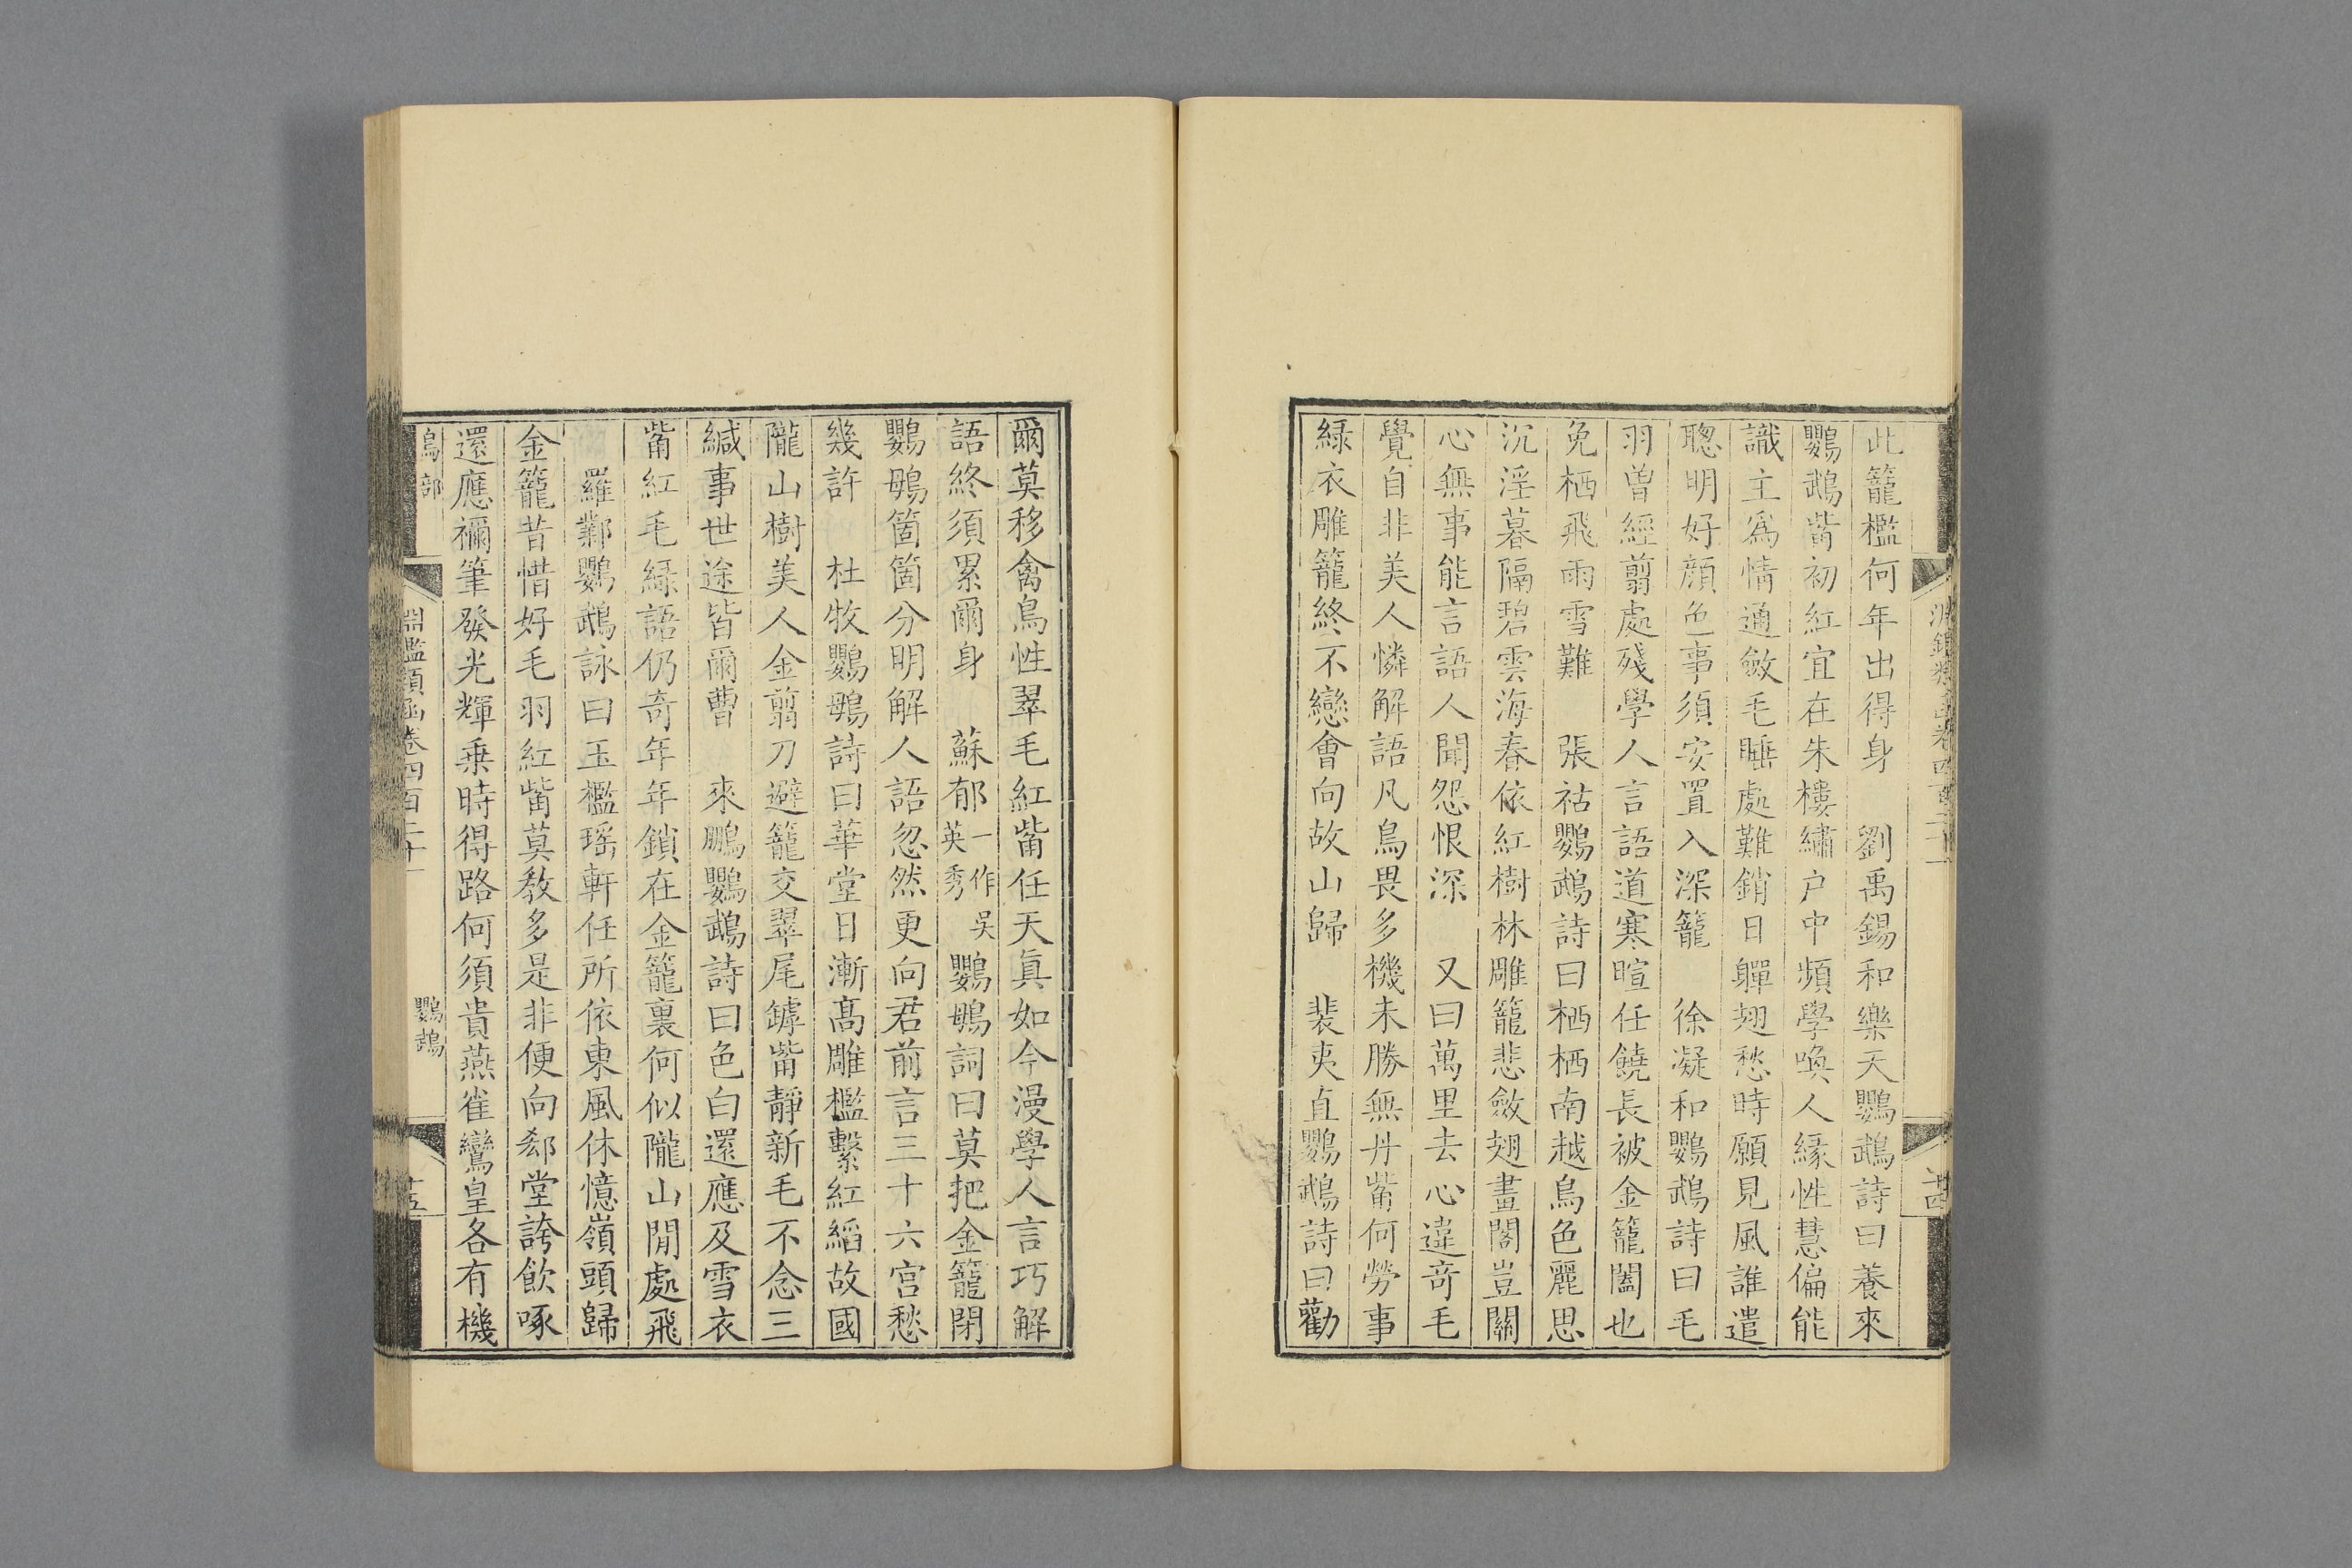 此籠檻何年出得身　劉禹錫和樂天鸚鵡詩曰養來
鸚鵡觜初紅宜在朱樓繡户中頻學喚人緣性慧偏能
識主爲情通斂毛睡處難銷日嚲翅愁時願見風誰遣
聰明好顔色事須安置入深籠　徐凝和鸚鵡詩曰毛
羽曾經翦處殘學人言語道寒暄任饒長被金籠闔也
免栖飛雨雪難　張祜鸚鵡詩曰栖栖南越鳥色麗思
沉淫暮隔碧雲海春依紅樹林雕籠悲斂翅畫閣豈關
心無事能言語人聞怨恨深　又曰萬里去心違奇毛
覺自非美人憐解語凡鳥畏多機未勝無丹觜何勞事
緑衣雕籠終不戀會向故山歸　裴夷直鸚鵡詩曰勸
爾莫移禽鳥性翠毛紅觜任天真如今漫學人言巧解
語終須累爾身　蘇郁一作吳英秀鸚鴞詞曰莫把金籠閉
鸚鴞箇箇分明解人語忽然更向君前言三十六宮愁
幾許　杜牧鸚鴞詩曰華堂日漸髙雕檻繫紅縚故國
隴山樹美人金翦刀避籠交翠尾罅觜靜新毛不念三
緘事世途皆爾曹　來鵬鸚鵡詩曰色白還應及雪衣
觜紅毛緑語仍奇年年鎖在金籠裏何似隴山閒處飛
羅鄴鸚鵡詠曰玉檻瑶軒任所依東風休憶嶺頭歸
金籠昔惜好毛羽紅觜莫教多是非便向郄堂誇飲啄
還應禰筆發光輝乗時得路何須貴燕雀鸞皇各有機
鳥部
淵鑑類函卷四百二十一
鸚鵡
十五